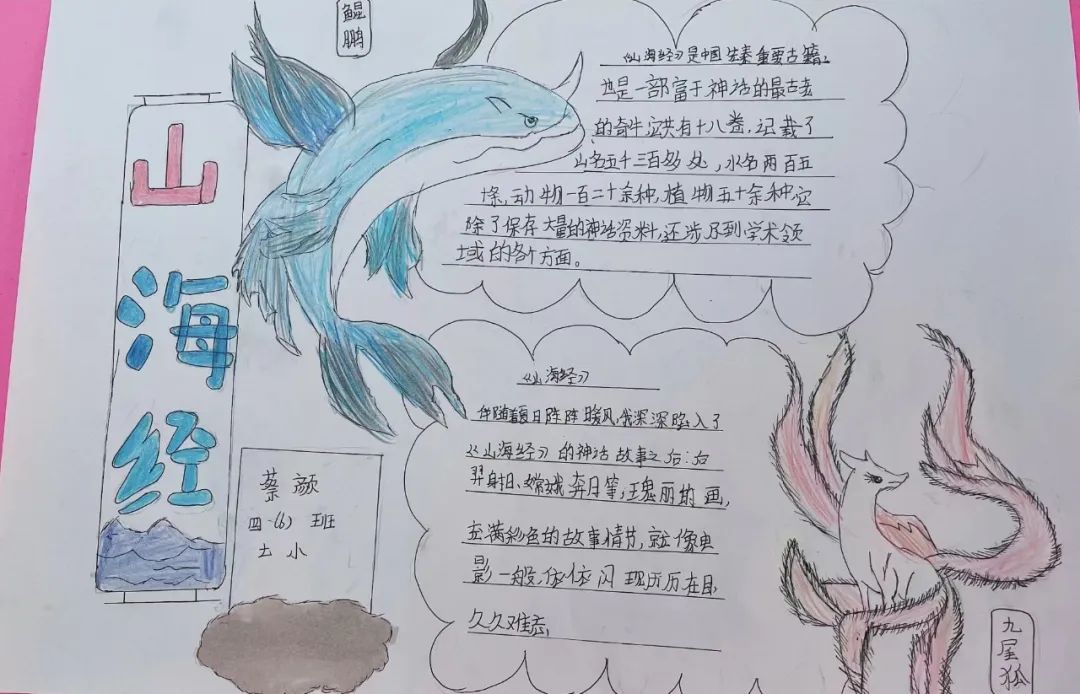 山海经
鲲鹏
《山海经》是中国先秦重要古籍。
也是一部富于神话的最古老
的奇书,它共有十八卷,记载了
山名五千三百多处,水名两百五
条,动物一百二十余种,植物五十余种,它
除了保存大量的神话资料,还涉及到学术领
域的各个方面。
《山海经》
伴随着夏日阵阵暖风,我深深陷入了
《山海经》的神话故事之后:后
羿射日、嫦娥奔月等,瑰丽的画,
充满彩色的故事情节,就像电
影一般,依依闪现历历在目,
久久难忘,
蔡颜
四·(6)班
土小
九尾狐